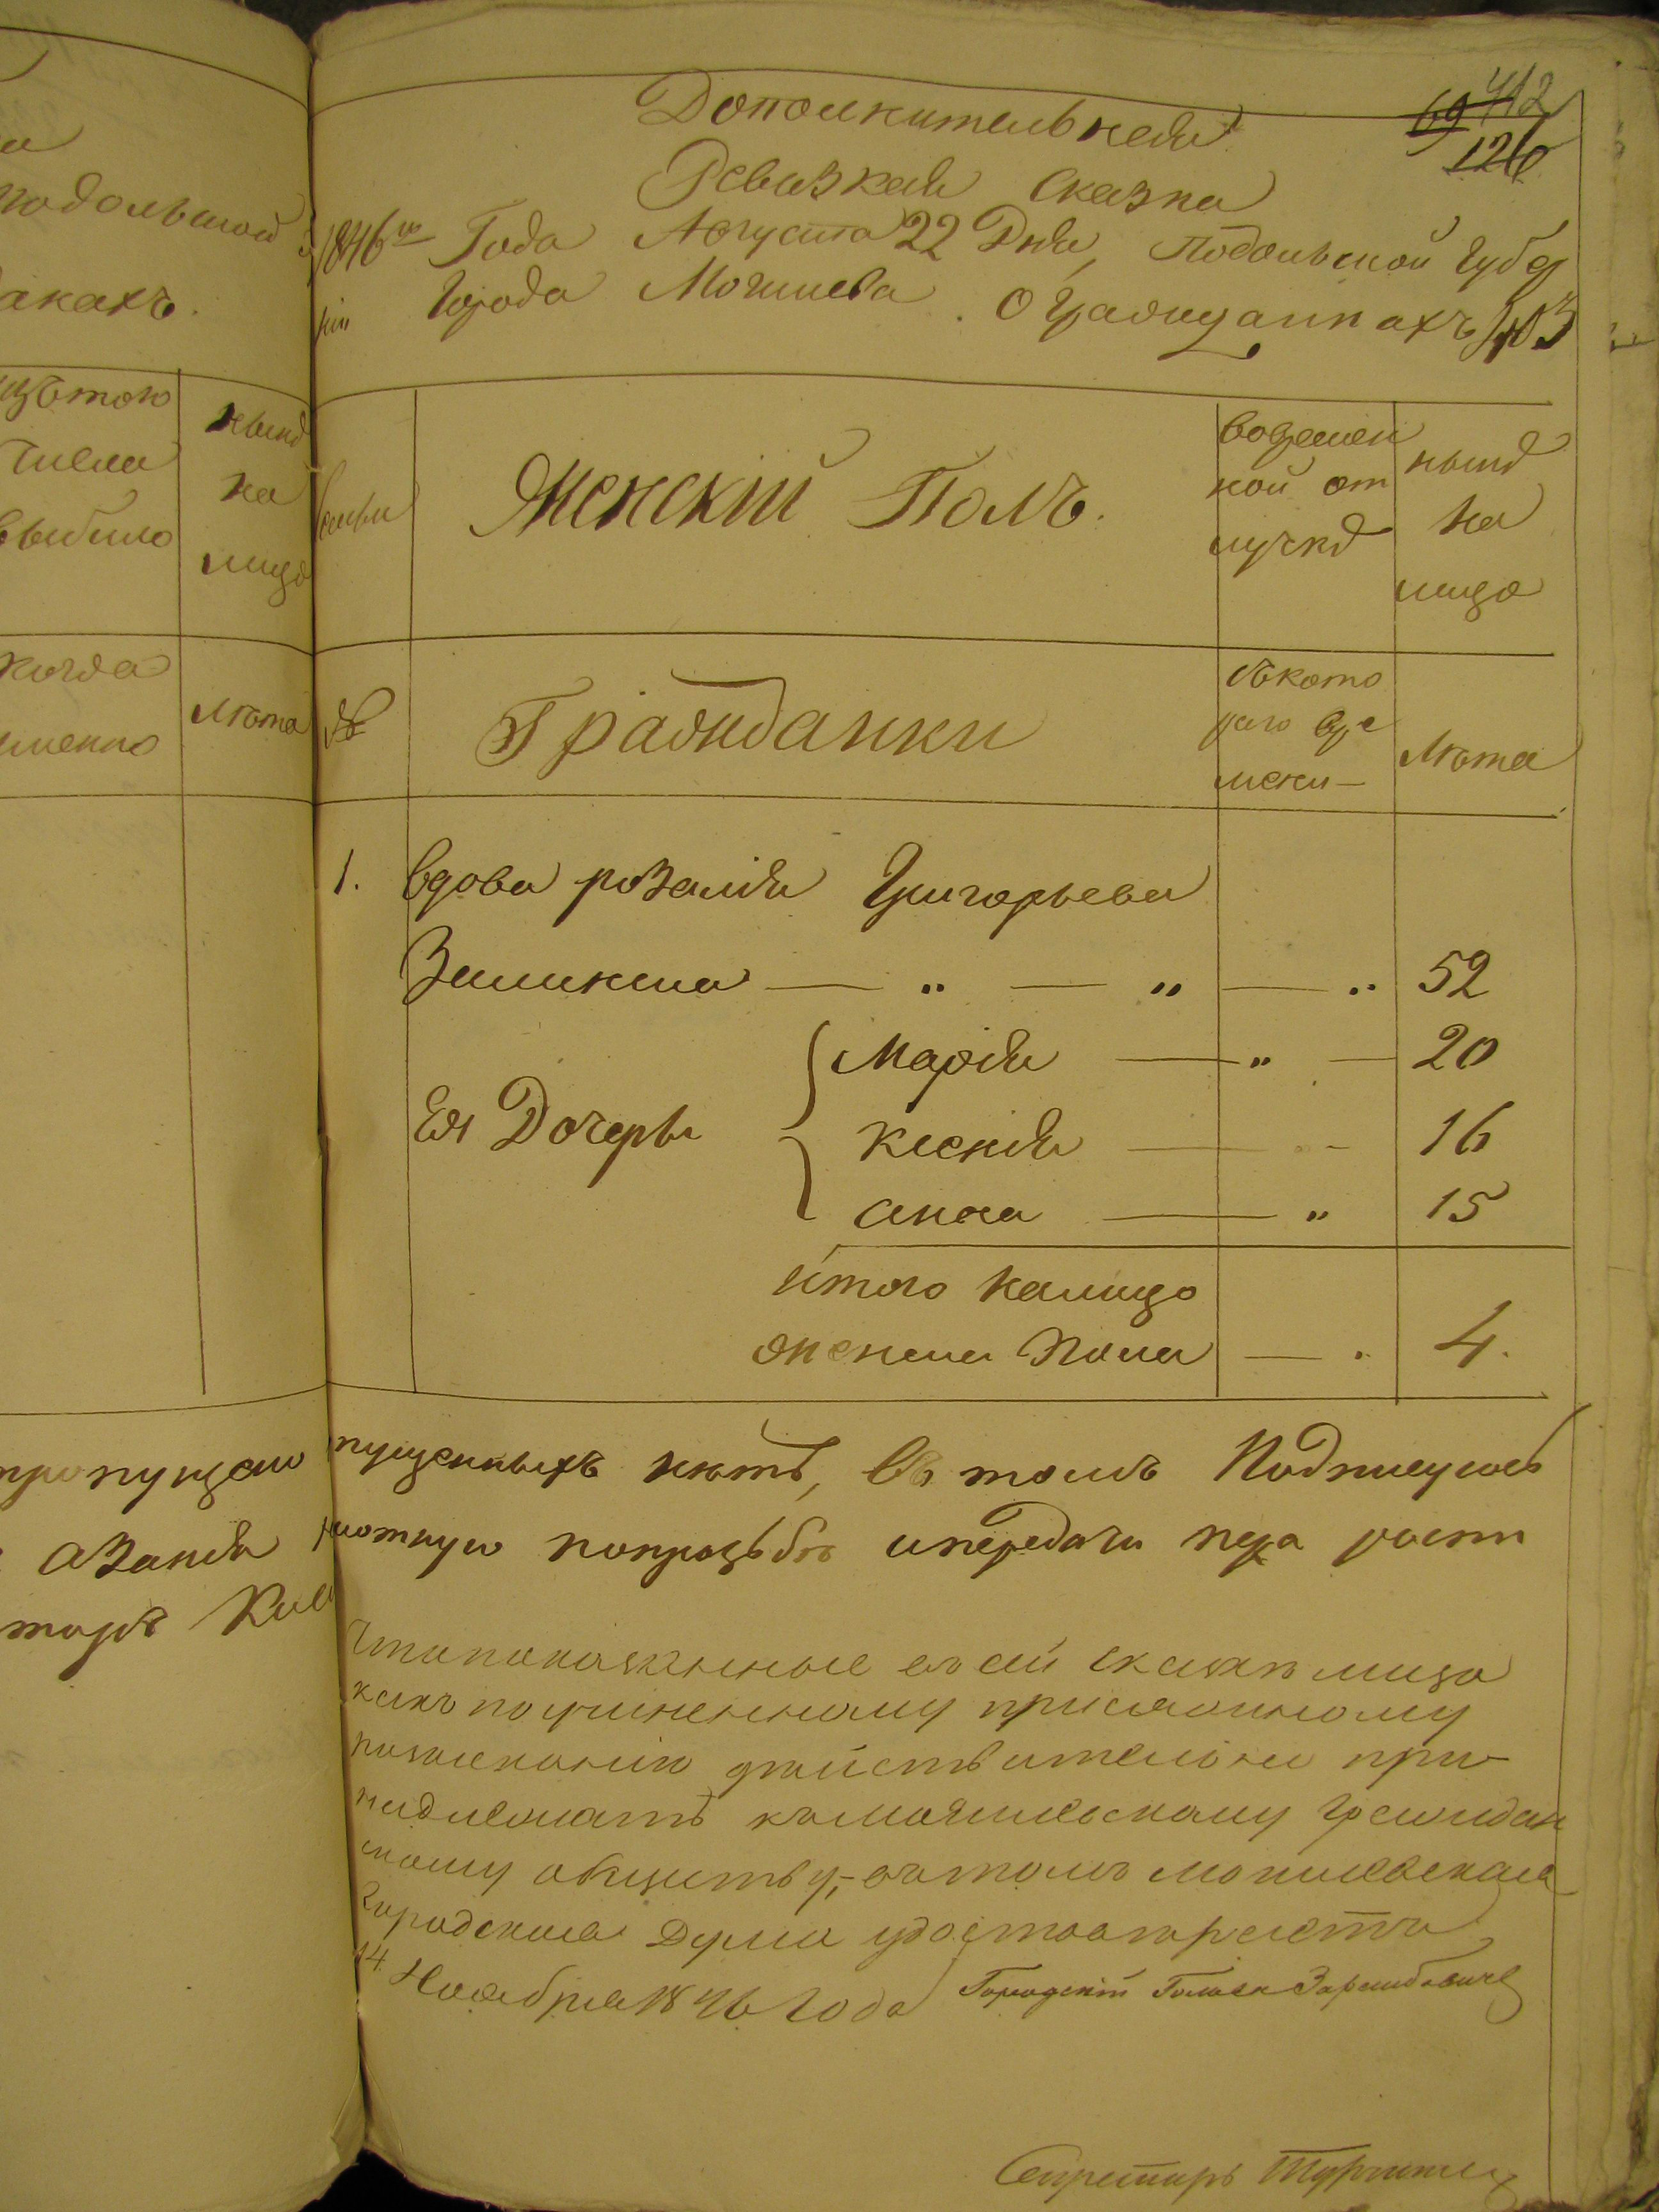 а
подольской
акахъ.
изътого
числа
выбыло
нынѣ
на
лицо
когда
именно
лѣта
пропущен
азанія
тарь
69 412
126
Дополнительная
Ревизкая Сказка
1846го Года Августа 22 Дня, Подольской Губер
ніи Города Могилева. О гражданкахъ
семьи
Женскій Полъ.
вовремен
ной от
лучкѣ
нынѣ
на
лицо
№
Гражданки
съкото
раго вре
мени —
Лѣта
1. вдова розалія Григорьева
— „ — „ — „ 52
Ея Дочеры
Марія — „ — 20
ксенія — „ — 16
анна — „ 15
итого налицо
женска Пола — . 4.
пущенныхъ нѣтъ, Въ томъ Подписуюсь
мотную попрозьбѣ ипередачи пера росписи
Что показанные въ сей сказкѣ лица
какъ по учиненному присяжному
показанію действительно при
надлежатъ къ могилевскому граждан
скому обществу,- въ томъ могилевская
Городская Дума удостоверяетъ
14 Ноября 1846 года Городскій Голова
Секретарь